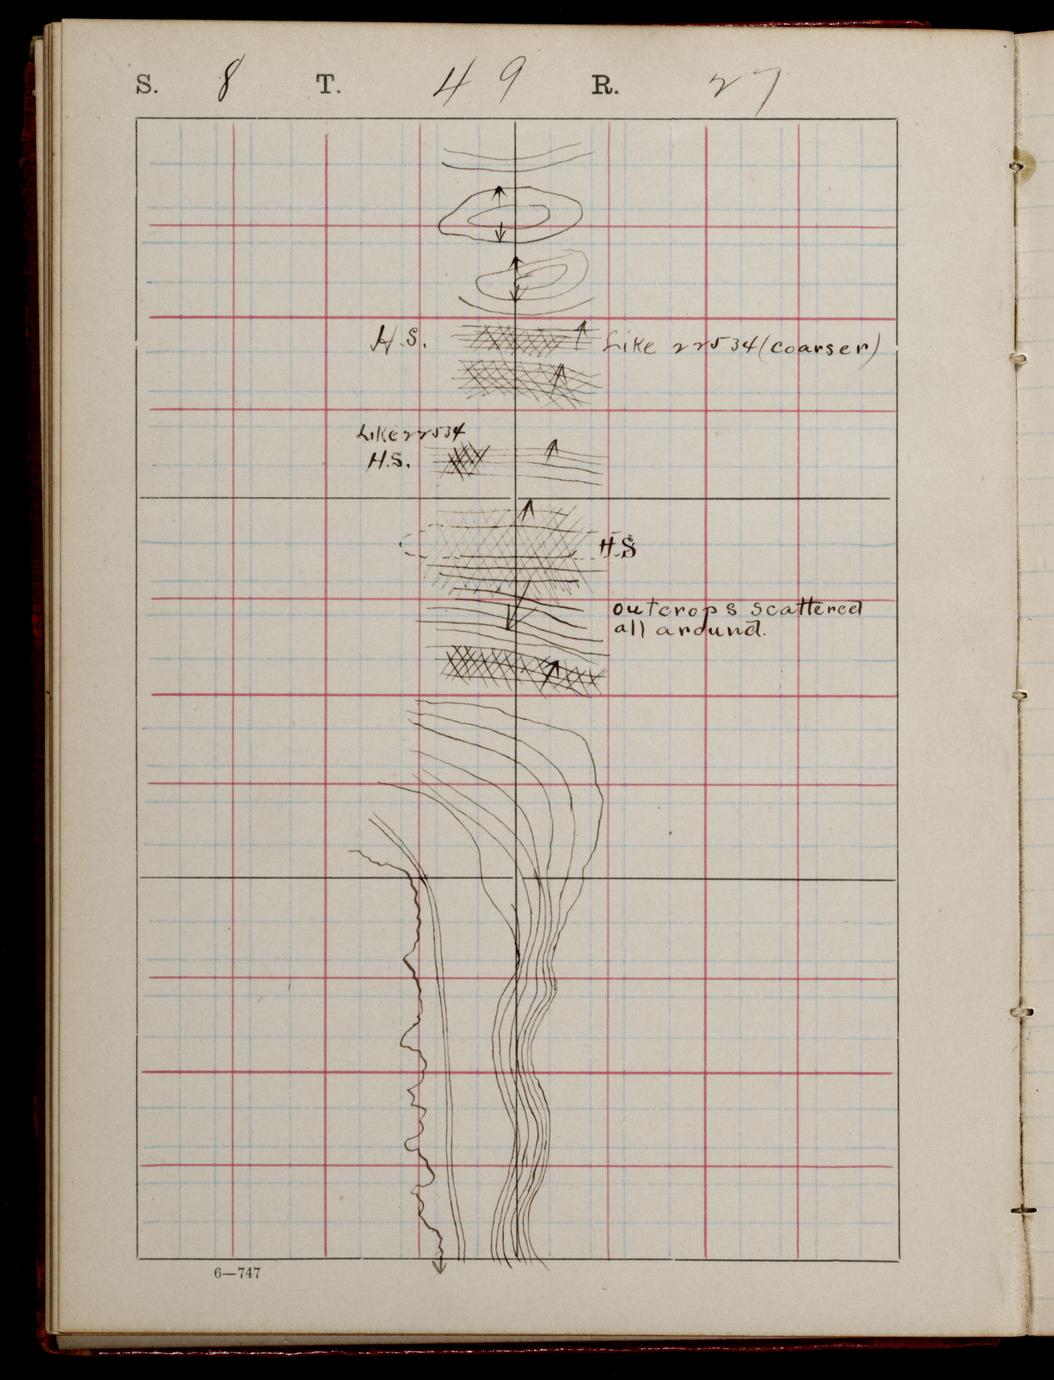 S. 8 T. 49 R. 27
H.S. Like 22534 (coarser)
Like 22534
H.S.
H.S
outcrops scattered
all around.
6—747